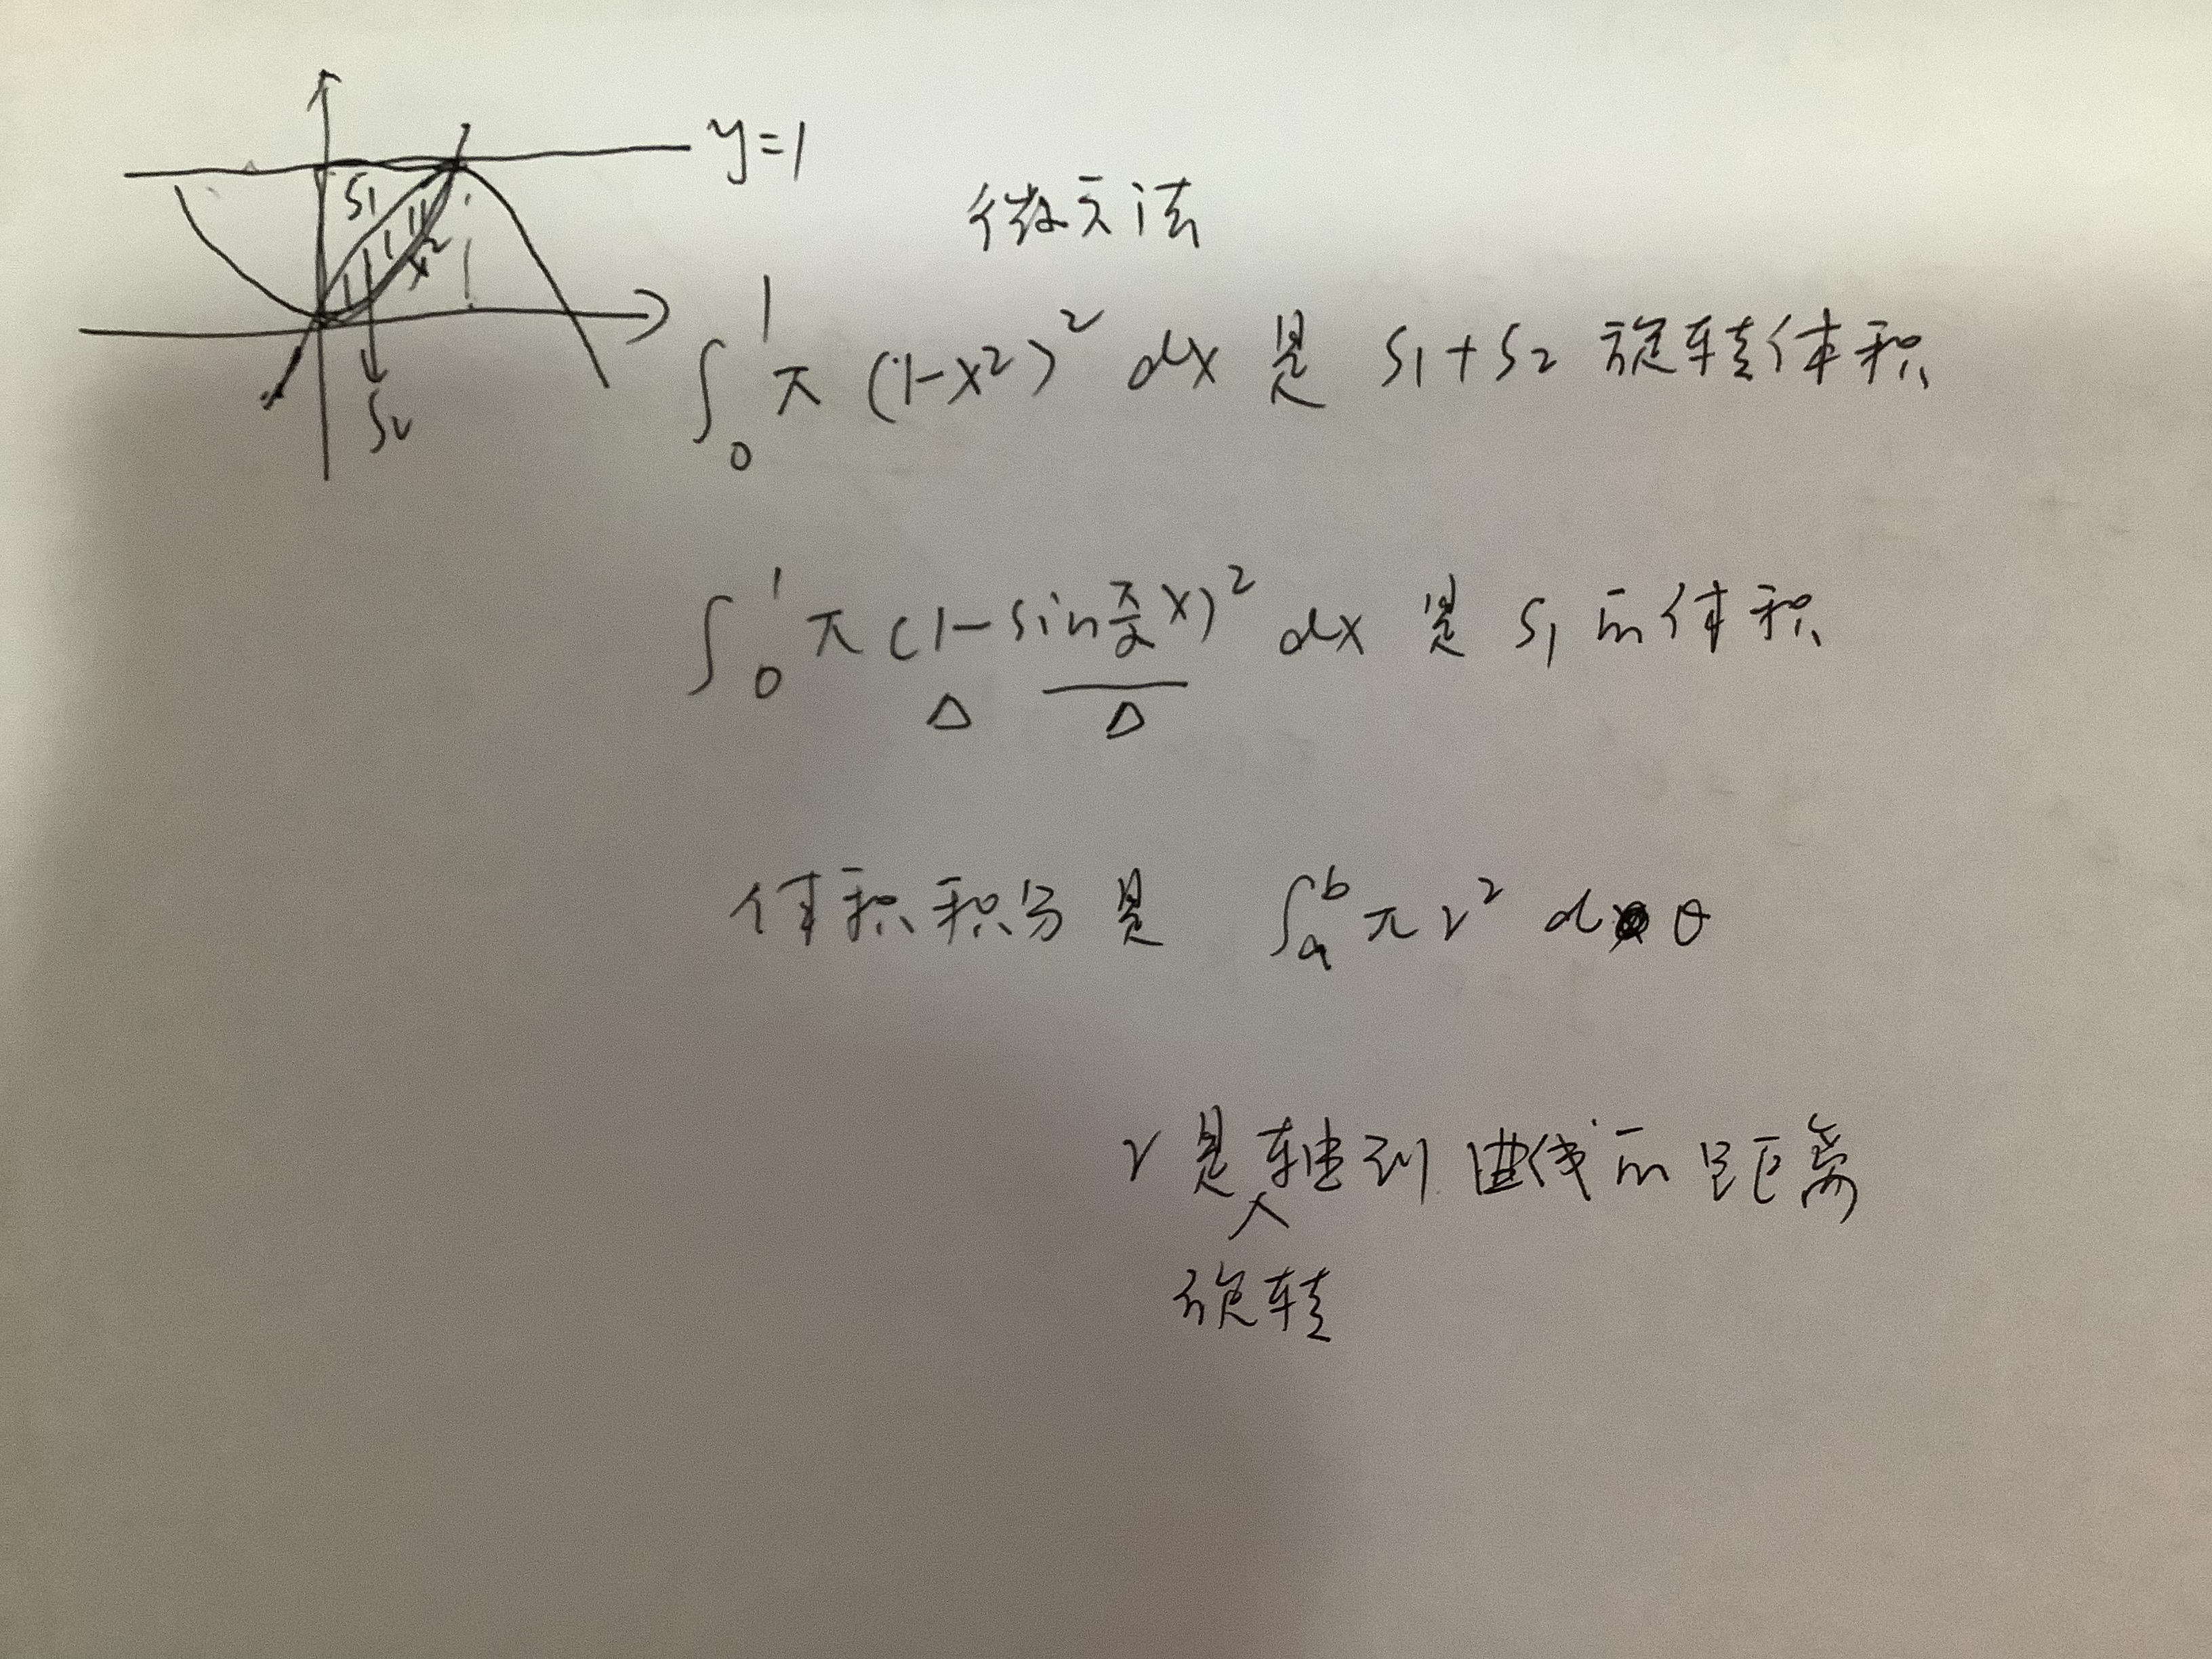 y=1
S₁
x²
S₂
微元法
∫₀¹ π (1-x²)² dx 是 S₁+S₂ 旋转体积
∫₀¹ π (1-sin π/2 x)² dx 是 S₁ 的体积
Δ Δ
体积积分是 ∫ₐᵇ π r² d θ
r 是轴到曲线的距离
旋转